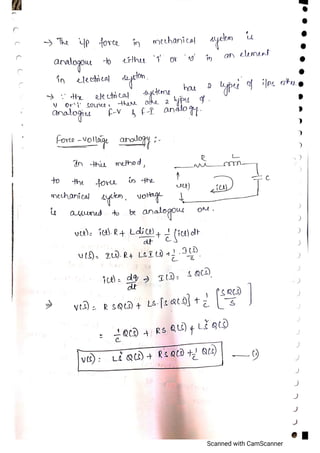 → The i/p force in mechanical system is
analogous to either 'i' or 'v' in an element
in electrical system.
→ ∵ the electrical systems has 2 types of i/ps either
v or 'i' source, there are 2 types of
analogies F-V & F-I analogy.
Force - voltage analogy :-
In this method,
to the force in the
mechanical system, voltage
is assumed to be analogous one.
R L
v(t) i(t) C
v(t) = i(t) R + L di(t)/dt + 1/C ∫i(t) dt
v(s) = I(s) R + LS I(s) + 1/C I(s)/S
i(t) = dq/dt ⇒ I(s) = s Q(s)
⇒ V(s) = R SQ(s) + LS [s Q(s)] + 1/C [S Q(s)/S]
= 1/C Q(s) + RS Q(s) + LS² Q(s)
V(s) = LS² Q(s) + RS Q(s) + 1/C Q(s)
Scanned with CamScanner